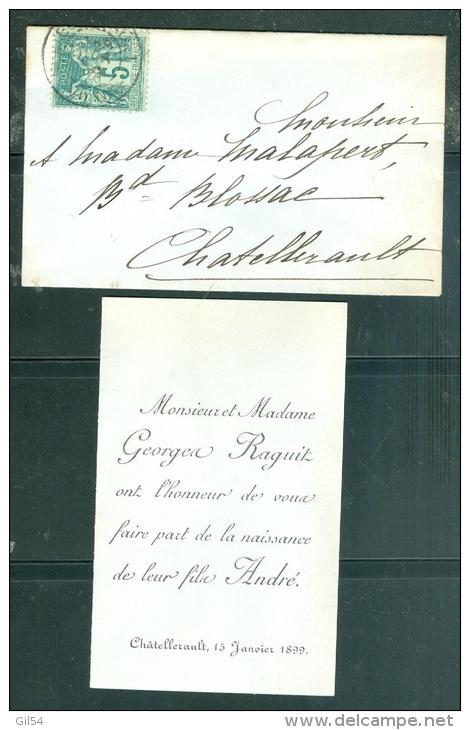 POSTES
5
Monsieur
A Madame Malapert,
Bd Blossac
Chatellerault
Monsieur et Madame
Georges Raguit
ont l'honneur de vous
faire part de la naissance
de leur fils André.
Châtellerault, 15 Janvier 1899.
Gil54
www.delcampe.net